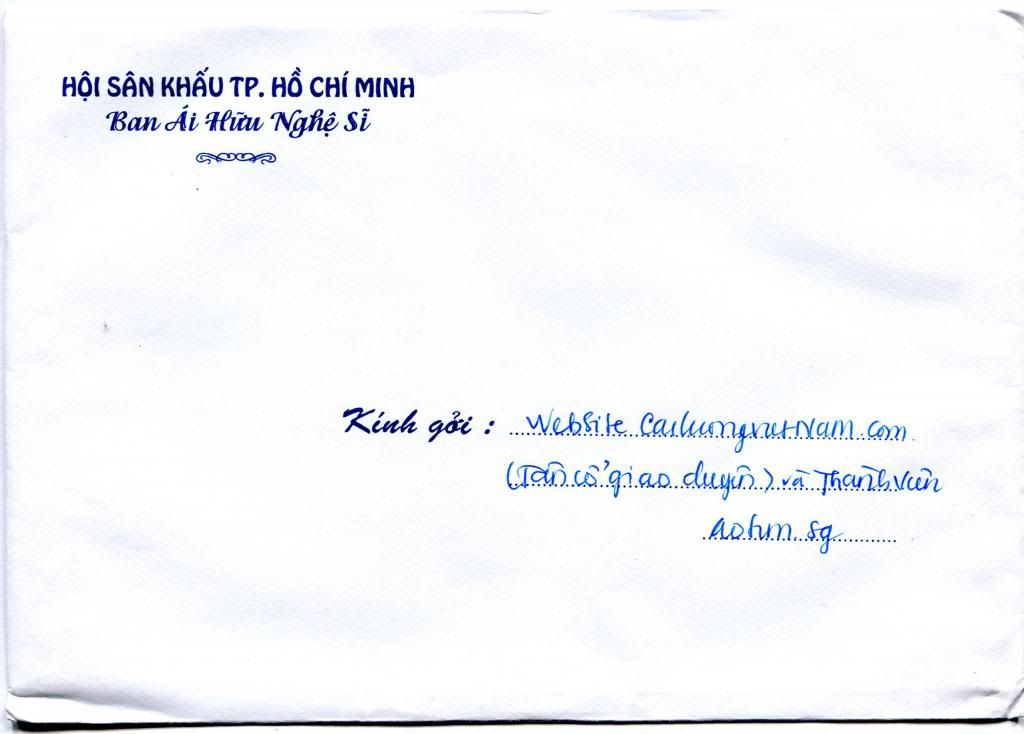 HỘI SÂN KHẤU TP. HỒ CHÍ MINH
Ban Ái Hữu Nghệ Sĩ
Kính gởi : Website Cailuongvietnam.com
(Tân cổ giao duyên) và Thành Viên
aotim sg